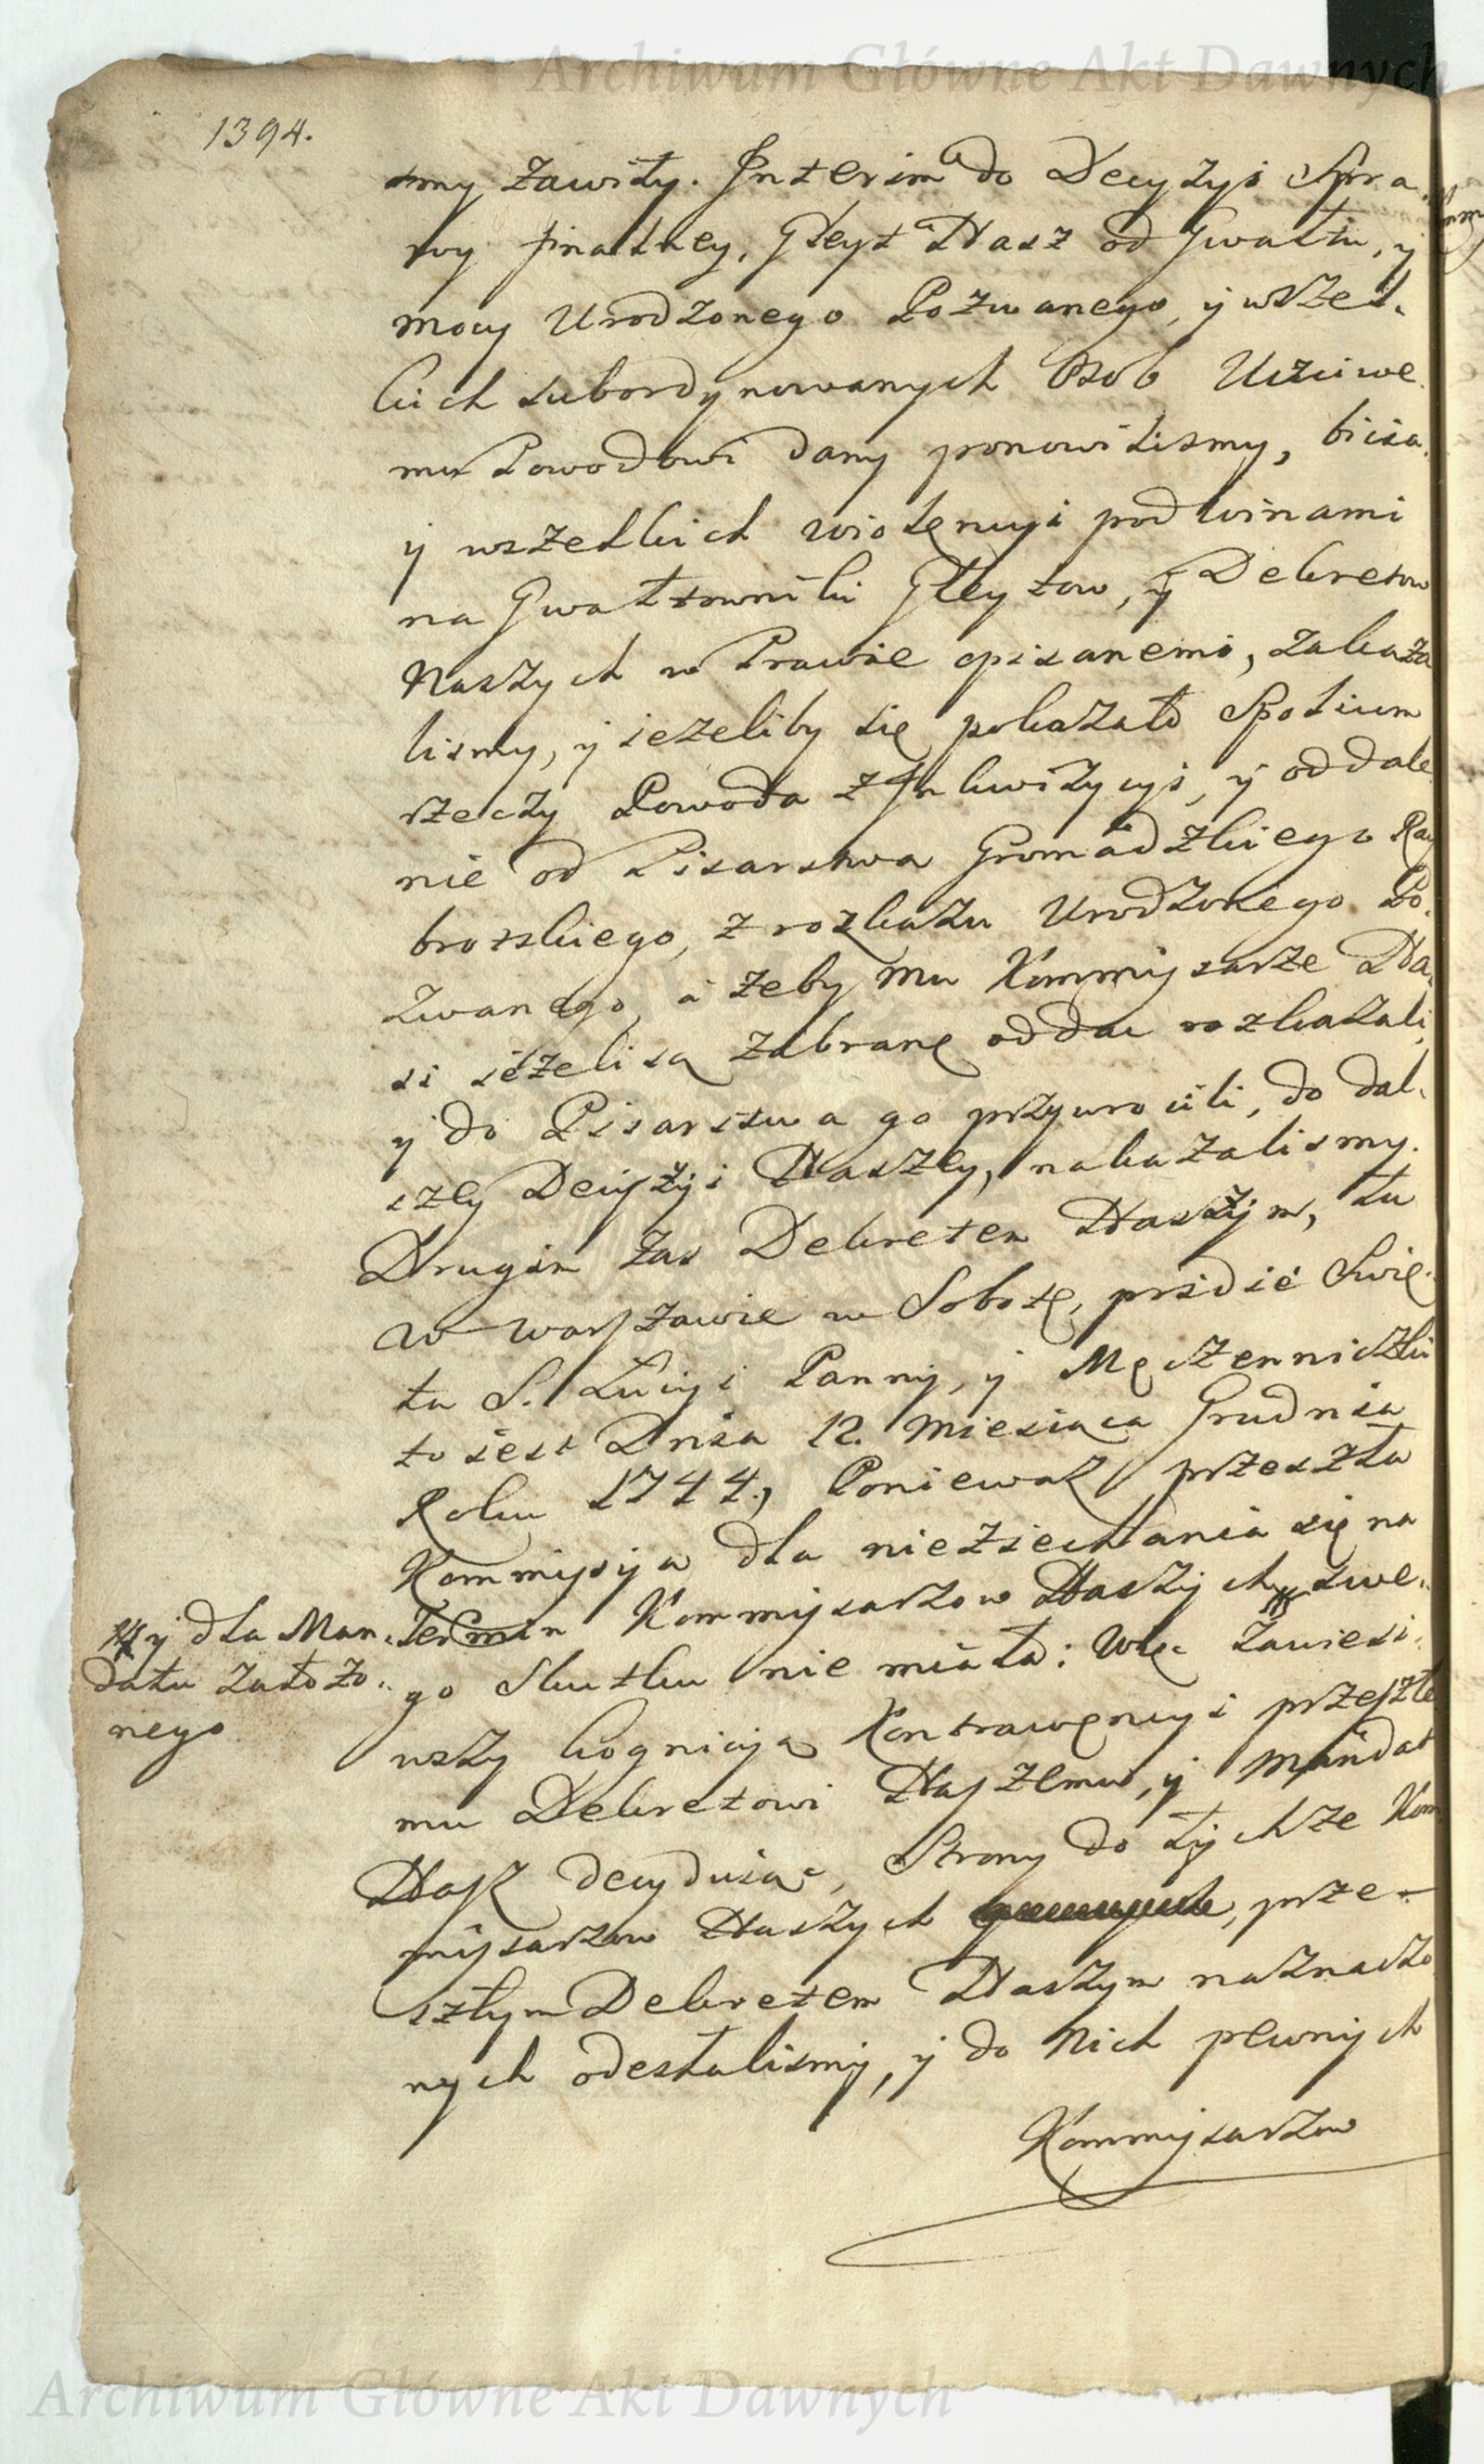 Archiwum Główne Akt Dawnych
1394.
smy zawity. Interim do Decyzyi Spra
wy finalney, Gleyt Nasz od Gwałtu, y
mocy Urodzonego Pozwanego, y wszel-
kich subordynowanych Osob Uczciwe
mu Powodowi dany ponowilismy, bicia
y wszelkich wiolencyi pod winami
na Gwałtowniki Gleytow, y Dekretow
Naszych w Prawie opisanemi, zakaza
lismy, y iezeliby się pokazało Spolium
rzeczy Powoda z Inkwizycyi, y oddale
nie od Pisarstwa Gromadzkiego
brotskiego, z rozkazu Urodzonego Po-
zwanego, a żeby mu Kommisarze Na-
si ieżeli są zabrane oddac rozkazali,
y do Pisarstwa go przywrocili, do dal-
szey Decyzyi Naszey, nakazalismy.
Drugim zas Dekretem Naszym, tu
w Warszawie w Sobotę, pridie Swię-
ta S. Łucyi Panny, y Męczenniczki
to iest Dnia 12. Miesiąca Grudnia
Roku 1744., Ponieważ przeszła
Kommisyia dla nieziechania się na
Termin Kommisarzow Naszych swe-
# y dla Man-
datu założo-
nego
go Skutku nie miała: Więc zawiesi-
wszy kognicyą Kontrawencyi przeszłe
mu Dekretowi Naszemu, y Mandat
Nasz decyduiąc, Strony do tychże Kom
misarzow Naszych prze-
szłym Dekretem Naszym naznaczo
nych odesłalismy, y do Nich pewnych
Kommisarzow
Archiwum Główne Akt Dawnych